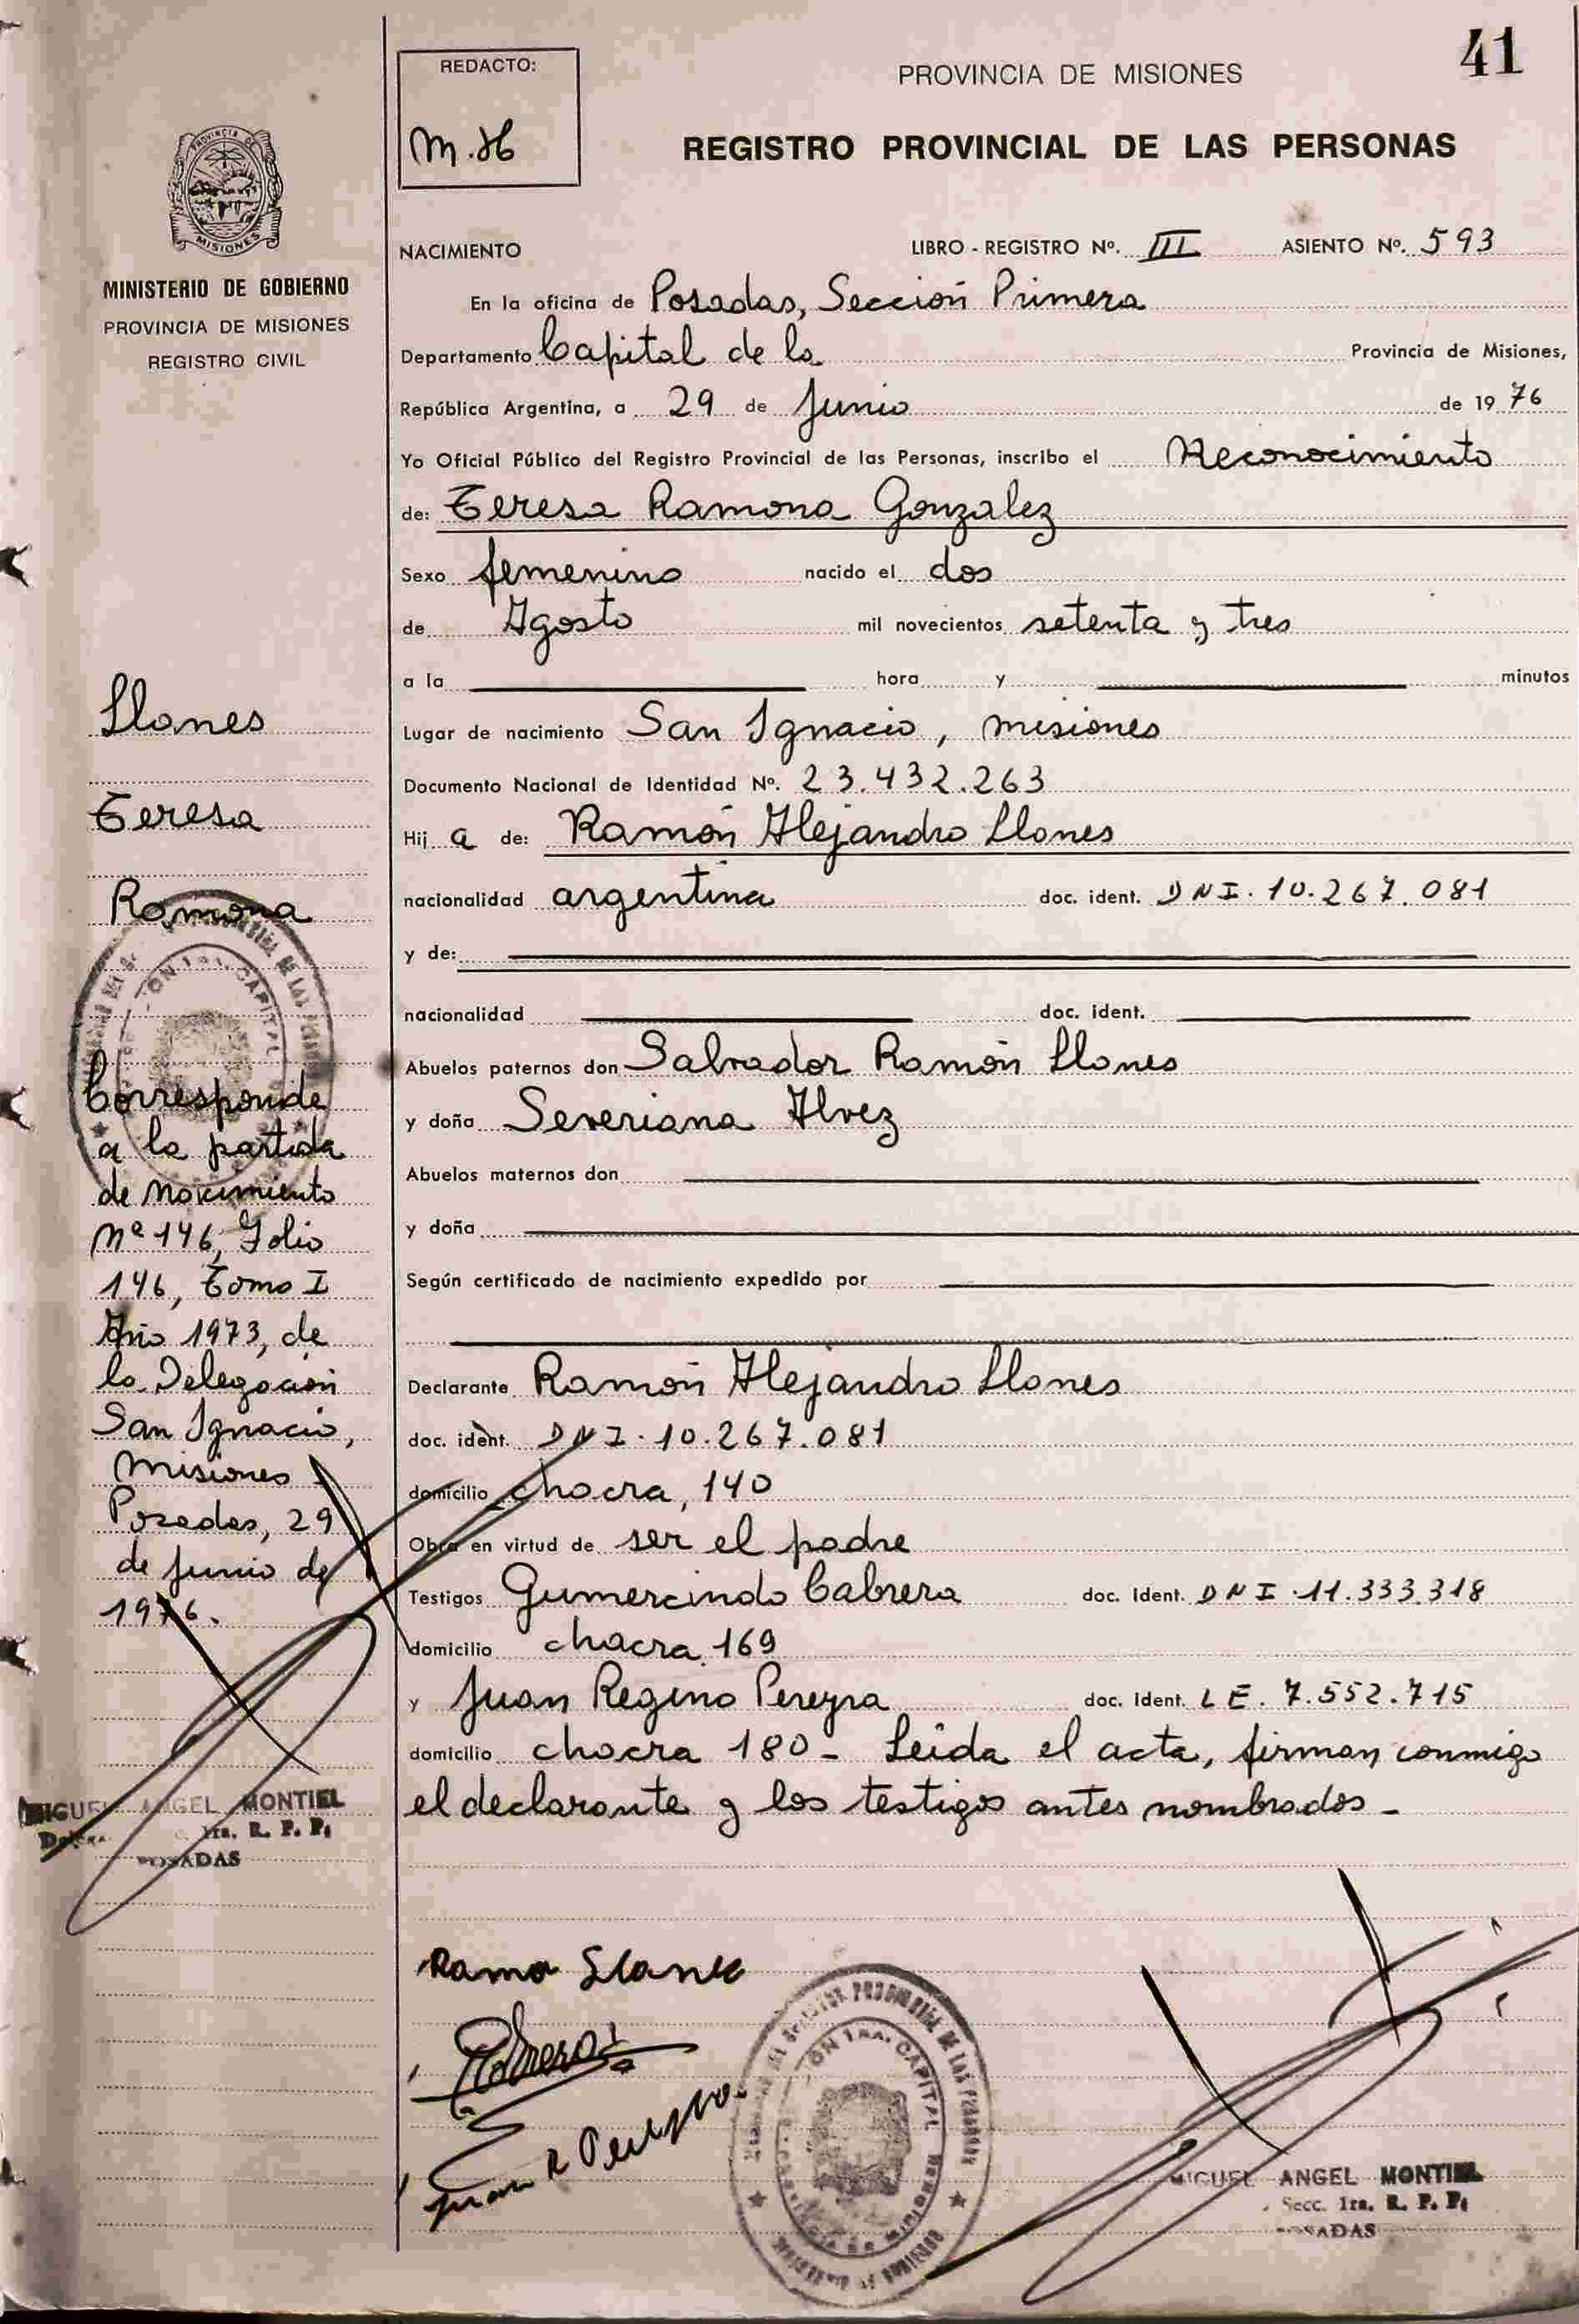 41
REDACTO:
M.H
PROVINCIA DE MISIONES
REGISTRO PROVINCIAL DE LAS PERSONAS
PROVINCIA DE
MISIONES
MINISTERIO DE GOBIERNO
PROVINCIA DE MISIONES
REGISTRO CIVIL
NACIMIENTO LIBRO - REGISTRO Nº. III ASIENTO Nº. 593
En la oficina de Posadas, Sección Primera
Departamento Capital de la Provincia de Misiones,
República Argentina, a 29 de Junio de 1976
Yo Oficial Público del Registro Provincial de las Personas, inscribo el Reconocimiento
de: Teresa Ramona Gonzalez
Sexo femenino nacido el dos
de Agosto mil novecientos setenta y tres
a la hora y minutos
Lugar de nacimiento San Ignacio, Misiones
Documento Nacional de Identidad Nº. 23.432.263
Hij a de: Ramón Alejandro Llanes
nacionalidad argentina doc. ident. DNI. 10.267.081
y de:
nacionalidad doc. ident.
Abuelos paternos don Salvador Ramón Llanes
y doña Severiana Alvez
Abuelos maternos don
y doña
Según certificado de nacimiento expedido por
Declarante Ramón Alejandro Llanes
doc. ident. DNI. 10.267.081
domicilio chacra, 140
Obra en virtud de ser el padre
Testigos Gumercindo Cabrera doc. Ident. DNI. 11.333.318
domicilio chacra 169
y Juan Regino Pereyra doc. Ident. LE. 7.552.715
domicilio chacra 180 - Leida el acta, firman conmigo
el declarante y los testigos antes nombrados -
Llanes
Teresa
Ramona
Corresponde
a la partida
de nacimiento
Nº 146, Folio
146, Tomo I
Año 1973, de
la Delegación
San Ignacio,
Misiones
Posadas, 29
de Junio de
1976.
MIGUEL ANGEL MONTIEL
1ra. R. P. P.
POSADAS
Ramo Llanes
Cabrera
Juan R Pereyra
MIGUEL ANGEL MONTIEL
Secc. 1ra. R. P. P.
POSADAS